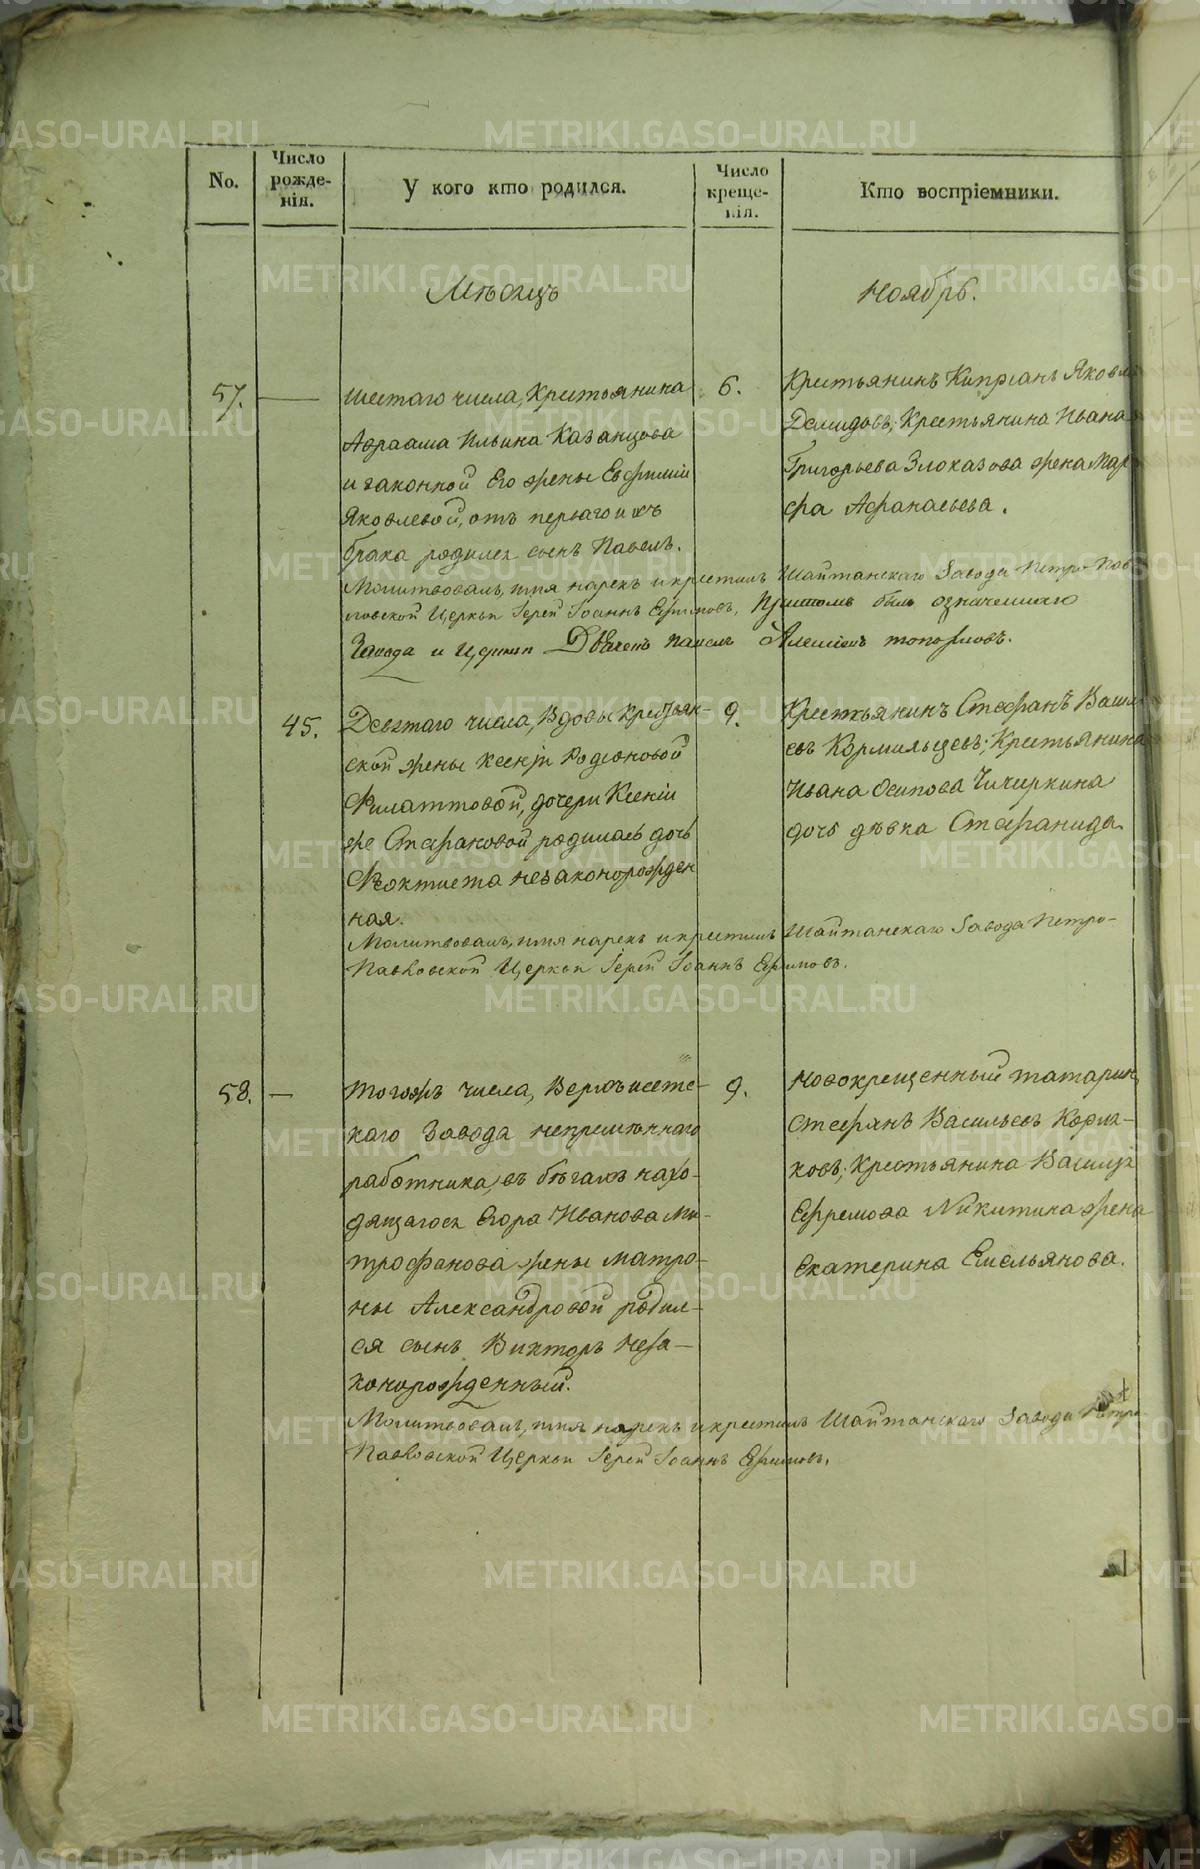 No.
Число рожде-нія.
У кого кто родился.
Число креще-нія.
Кто воспріемники.
Мѣсяцъ
Ноябрь.
57.
—
шестаго числа, Крестьянина
Авраама Ильина Казанцова
и законной Его жены Евфиміи
Яковлевой, отъ перваго ихъ
брака родился сынъ Павелъ.
6.
Крестьянинъ Кипріанъ Яковл
Демидовъ; Крестьянина Ивана
Григорьева Злоказова жена Мар
фа Афанасьева.
Молитвовалъ, имя нарекъ и крестилъ Шайтанскаго Завода Петро-Пав
ловской Церкви Іерей Іоаннъ Ефимовъ, Притомъ былъ означеннаго
Завода и Церкви Дьячекъ Павелъ Топорковъ.
45.
Девятаго числа, Вдовы Крестьян-
ской жены Ксеніи Родіоновой
Филатовой, дочери Ксеніи
же Стефановой родилась дочь
Феоктиста незаконорожден
ная.
9.
Крестьянинъ Стефанъ Васил
евъ Кормильцевъ; Крестьянина
Ивана Осипова Чичиркина
дочь дѣвка Стефанида.
Молитвовалъ, имя нарекъ и крестилъ Шайтанскаго Завода Петро-
Павловской Церкви Іерей Іоаннъ Ефимовъ.
58.
—
Тогожъ числа, Верхъ исетс-
каго Завода непремѣннаго
работника, въ бѣгахъ нахо-
дящагося Егора Иванова Ми-
трофанова жены Матро-
ны Александровой родил-
ся сынъ Викторъ Неза-
конорожденный.
9.
Новокрещенный татарин
Стефанъ Васильевъ Корма-
ковъ; Крестьянина Василія
Ефремова Никитина жена
Екатерина Емельянова.
Молитвовалъ, имя нарекъ и крестилъ Шайтанскаго Завода Петро
Павловской Церкви Іерей Іоаннъ Ефимовъ.
METRIKI.GASO-URAL.RU